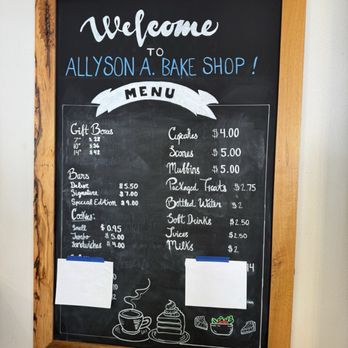 Welcome
TO
ALLYSON A. BAKE SHOP!
MENU
Gift Boxes
7" $28
10" $36
14" $42
Bars
Deluxe $5.50
Signature $7.00
Special Edition $9.00
Cookies:
Small $0.95
Jumbo $5.00
Sandwiches $4.00
Cupcakes $4.00
Scones $5.00
Muffins $5.00
Packaged Treats $2.75
Bottled Water $2
Soft Drinks $2.50
Juices $2.50
Milks $2